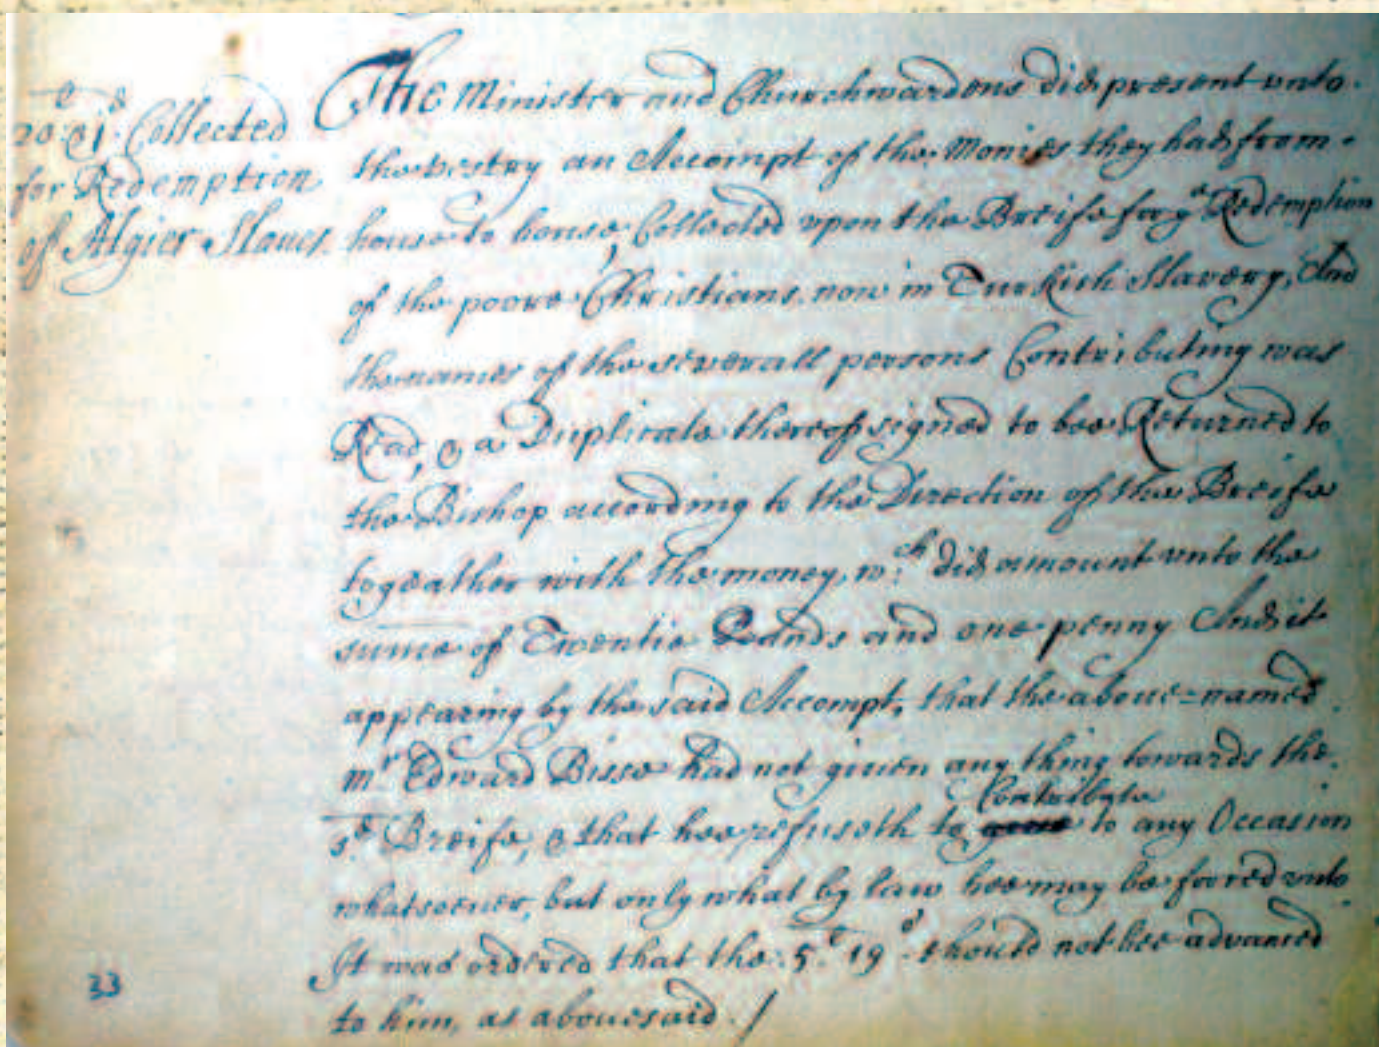 20:01. Collected
for Redemption
of Algier Slaues.
The Minister and Churchwardens did present vnto
the vestry an Accompt of the Monies they had from
house to house, Collected vpon the Breife for yᵉ Redemption
of the poore Christians now in Turkish Slavery, And
the names of the severall persons Contributing was
Read, & a Duplicate thereof signed to bee Returned to
the Bishop according to the Direction of the Breife
togeather with the money, wᶜʰ did amount vnto the
summe of Twentie Pounds and one penny And it
appearing by the said Accompt, that the aboue=named
mʳ Edward Bisse had not giuen any thing towards the
sᵈ Breife, & that hee refuseth to Contribute to any Occasion
whatsoeuer, but only what by law hee may be forced vnto.
It was ordered that the 5 19 should not bee advanced
to him, as abouesaid. /
33